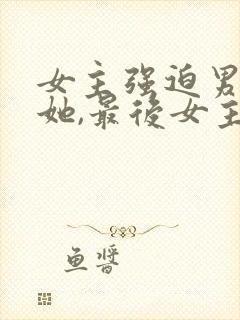 女主强迫男
她,最後女主
鱼酱